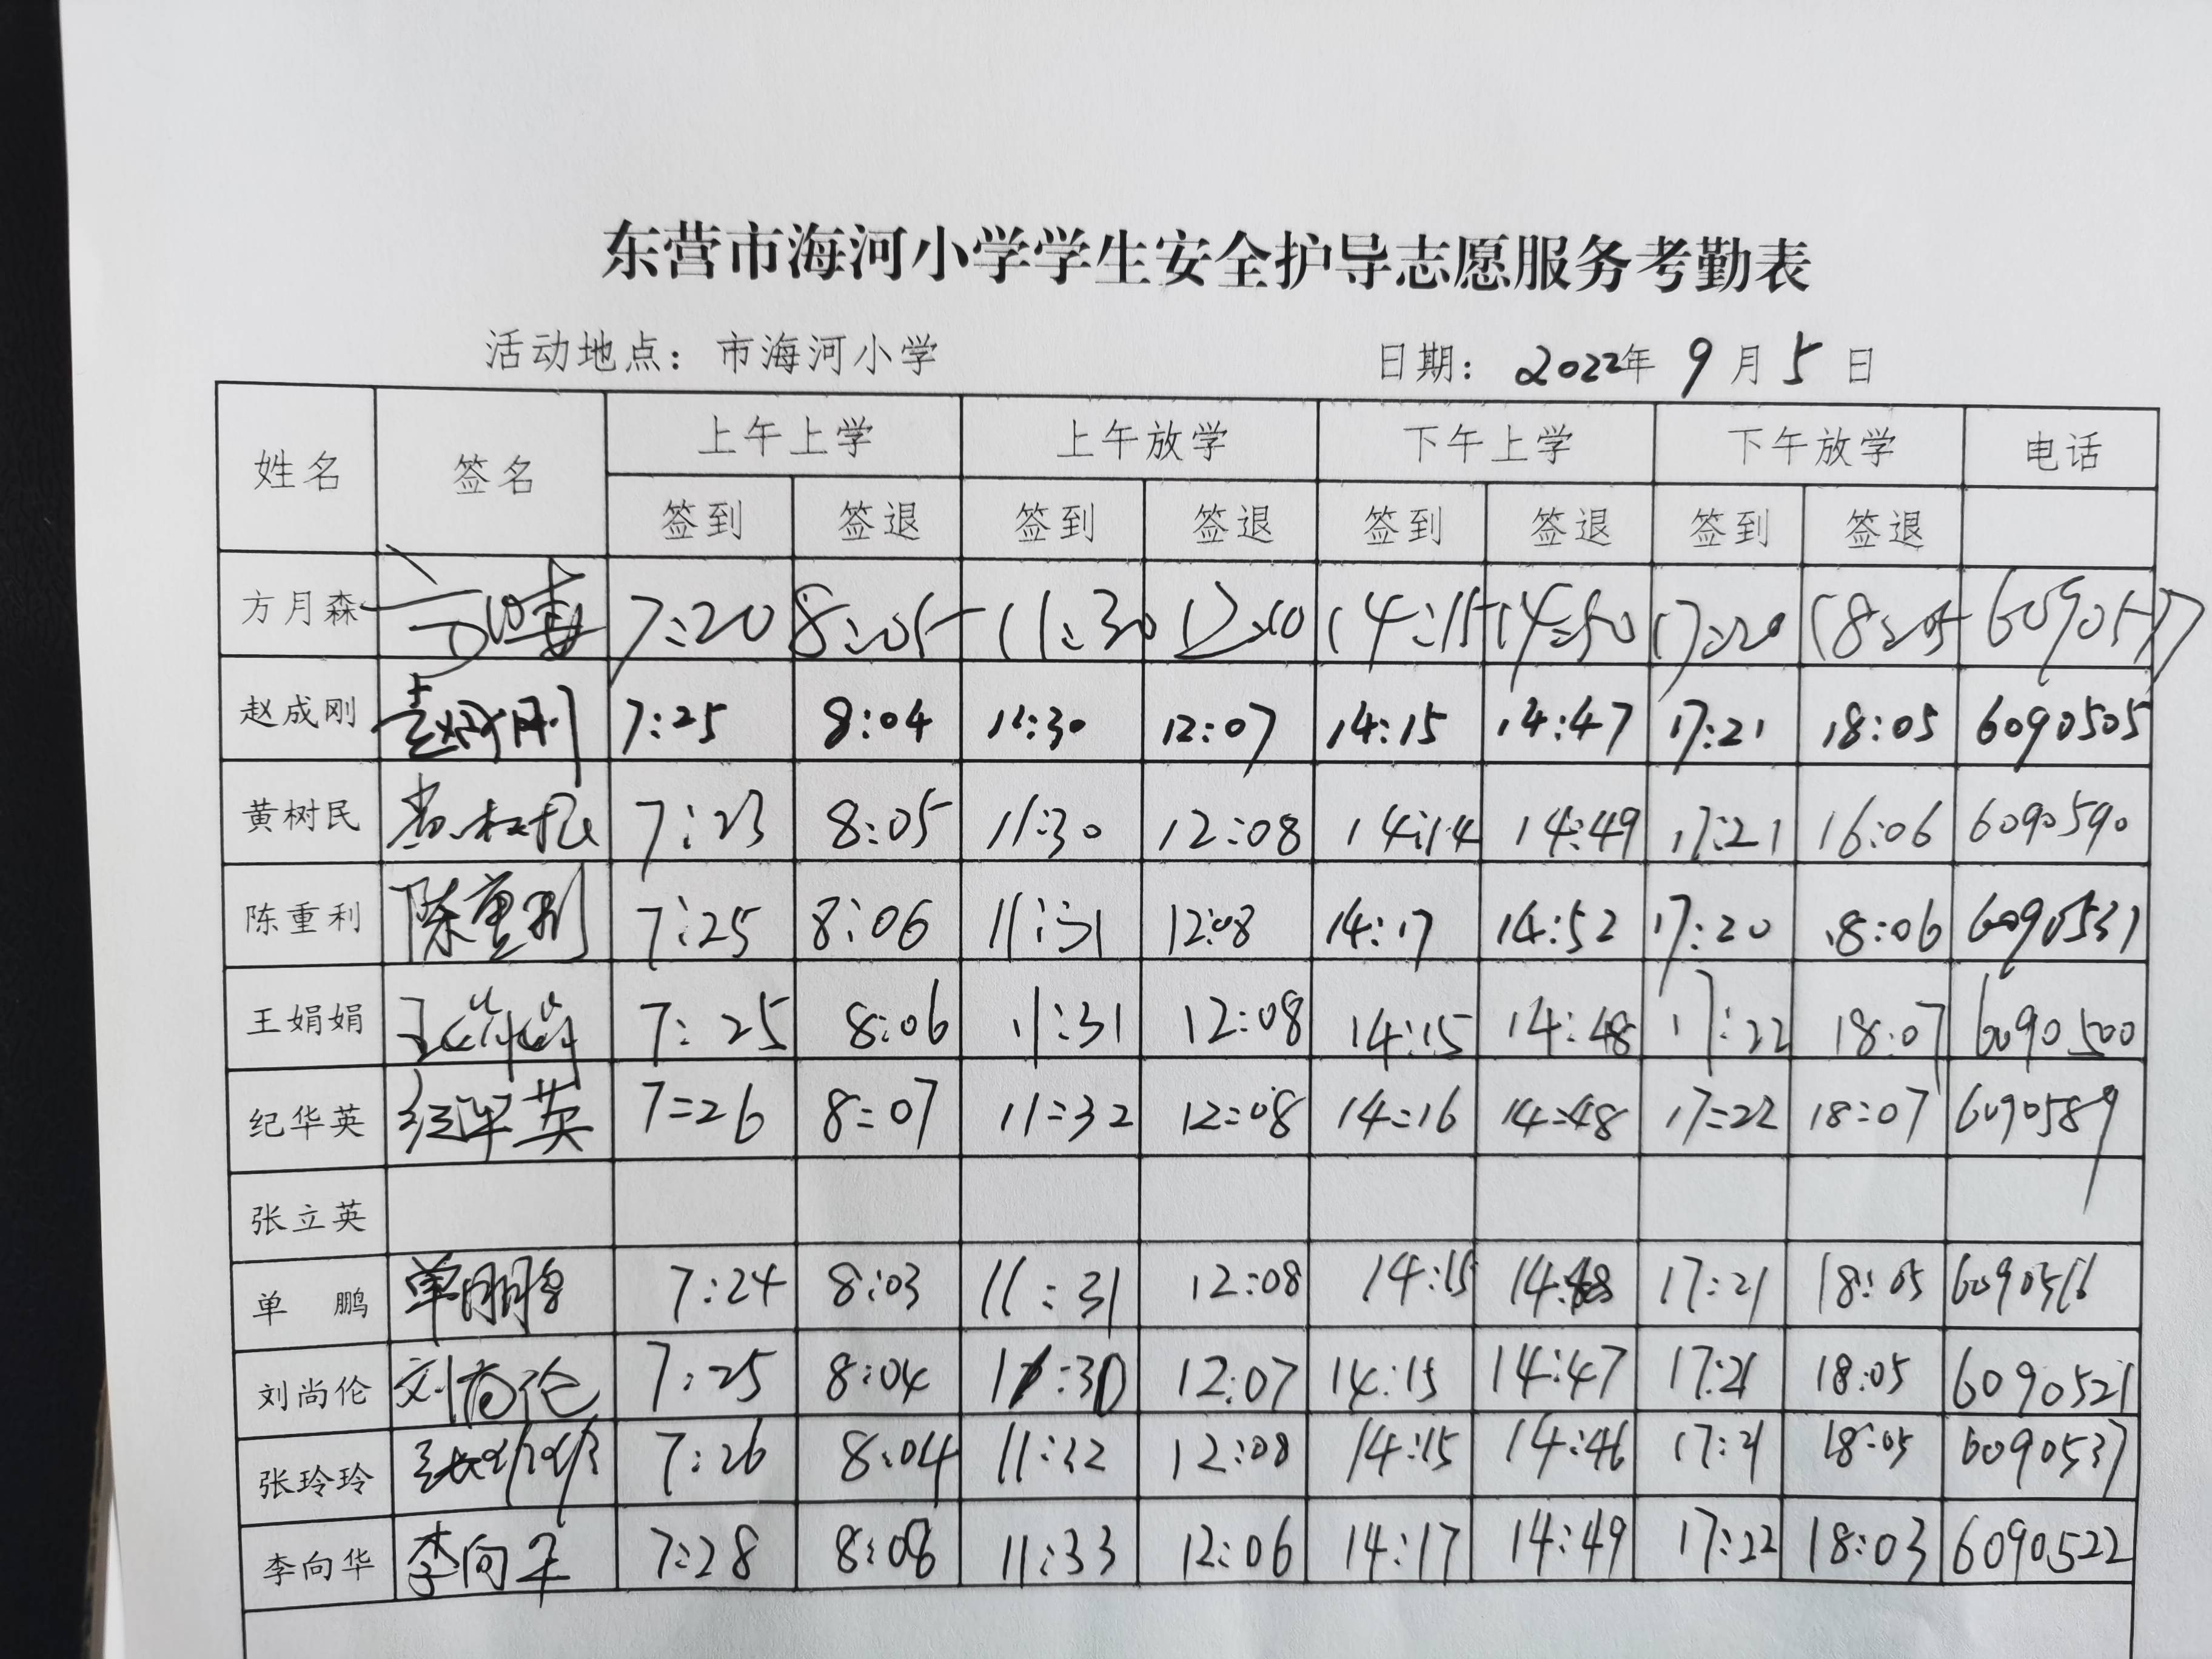 东营市海河小学学生安全护导志愿服务考勤表
活动地点：市海河小学 日期：2022年 9月 5日
姓名 签名 上午上学 上午放学 下午上学 下午放学 电话
签到 签退 签到 签退 签到 签退 签到 签退
方月森 7:20 8:05 11:30 12:10 14:15 14:50 17:20 18:05 6090517
赵成刚 赵成刚 7:25 8:04 11:30 12:07 14:15 14:47 17:21 18:05 6090505
黄树民 黄树民 7:23 8:05 11:30 12:08 14:14 14:49 17:21 16:06 6090590
陈重利 陈重利 7:25 8:06 11:31 12:08 14:17 14:52 17:20 18:06 6090531
王娟娟 王娟娟 7:25 8:06 11:31 12:08 14:15 14:48 17:22 18:07 6090500
纪华英 纪华英 7=26 8=07 11=32 12=08 14=16 14=48 17=22 18=07 6090589
张立英
单鹏 单鹏 7:24 8:03 11:31 12:08 14:15 14:48 17:21 18:05 6090516
刘尚伦 刘尚伦 7:25 8:04 11:30 12:07 14:15 14:47 17:21 18:05 6090521
张玲玲 张玲玲 7:26 8:04 11:32 12:08 14:15 14:46 17:21 18:05 6090537
李向华 李向华 7:28 8:08 11:33 12:06 14:17 14:49 17:22 18:03 6090522